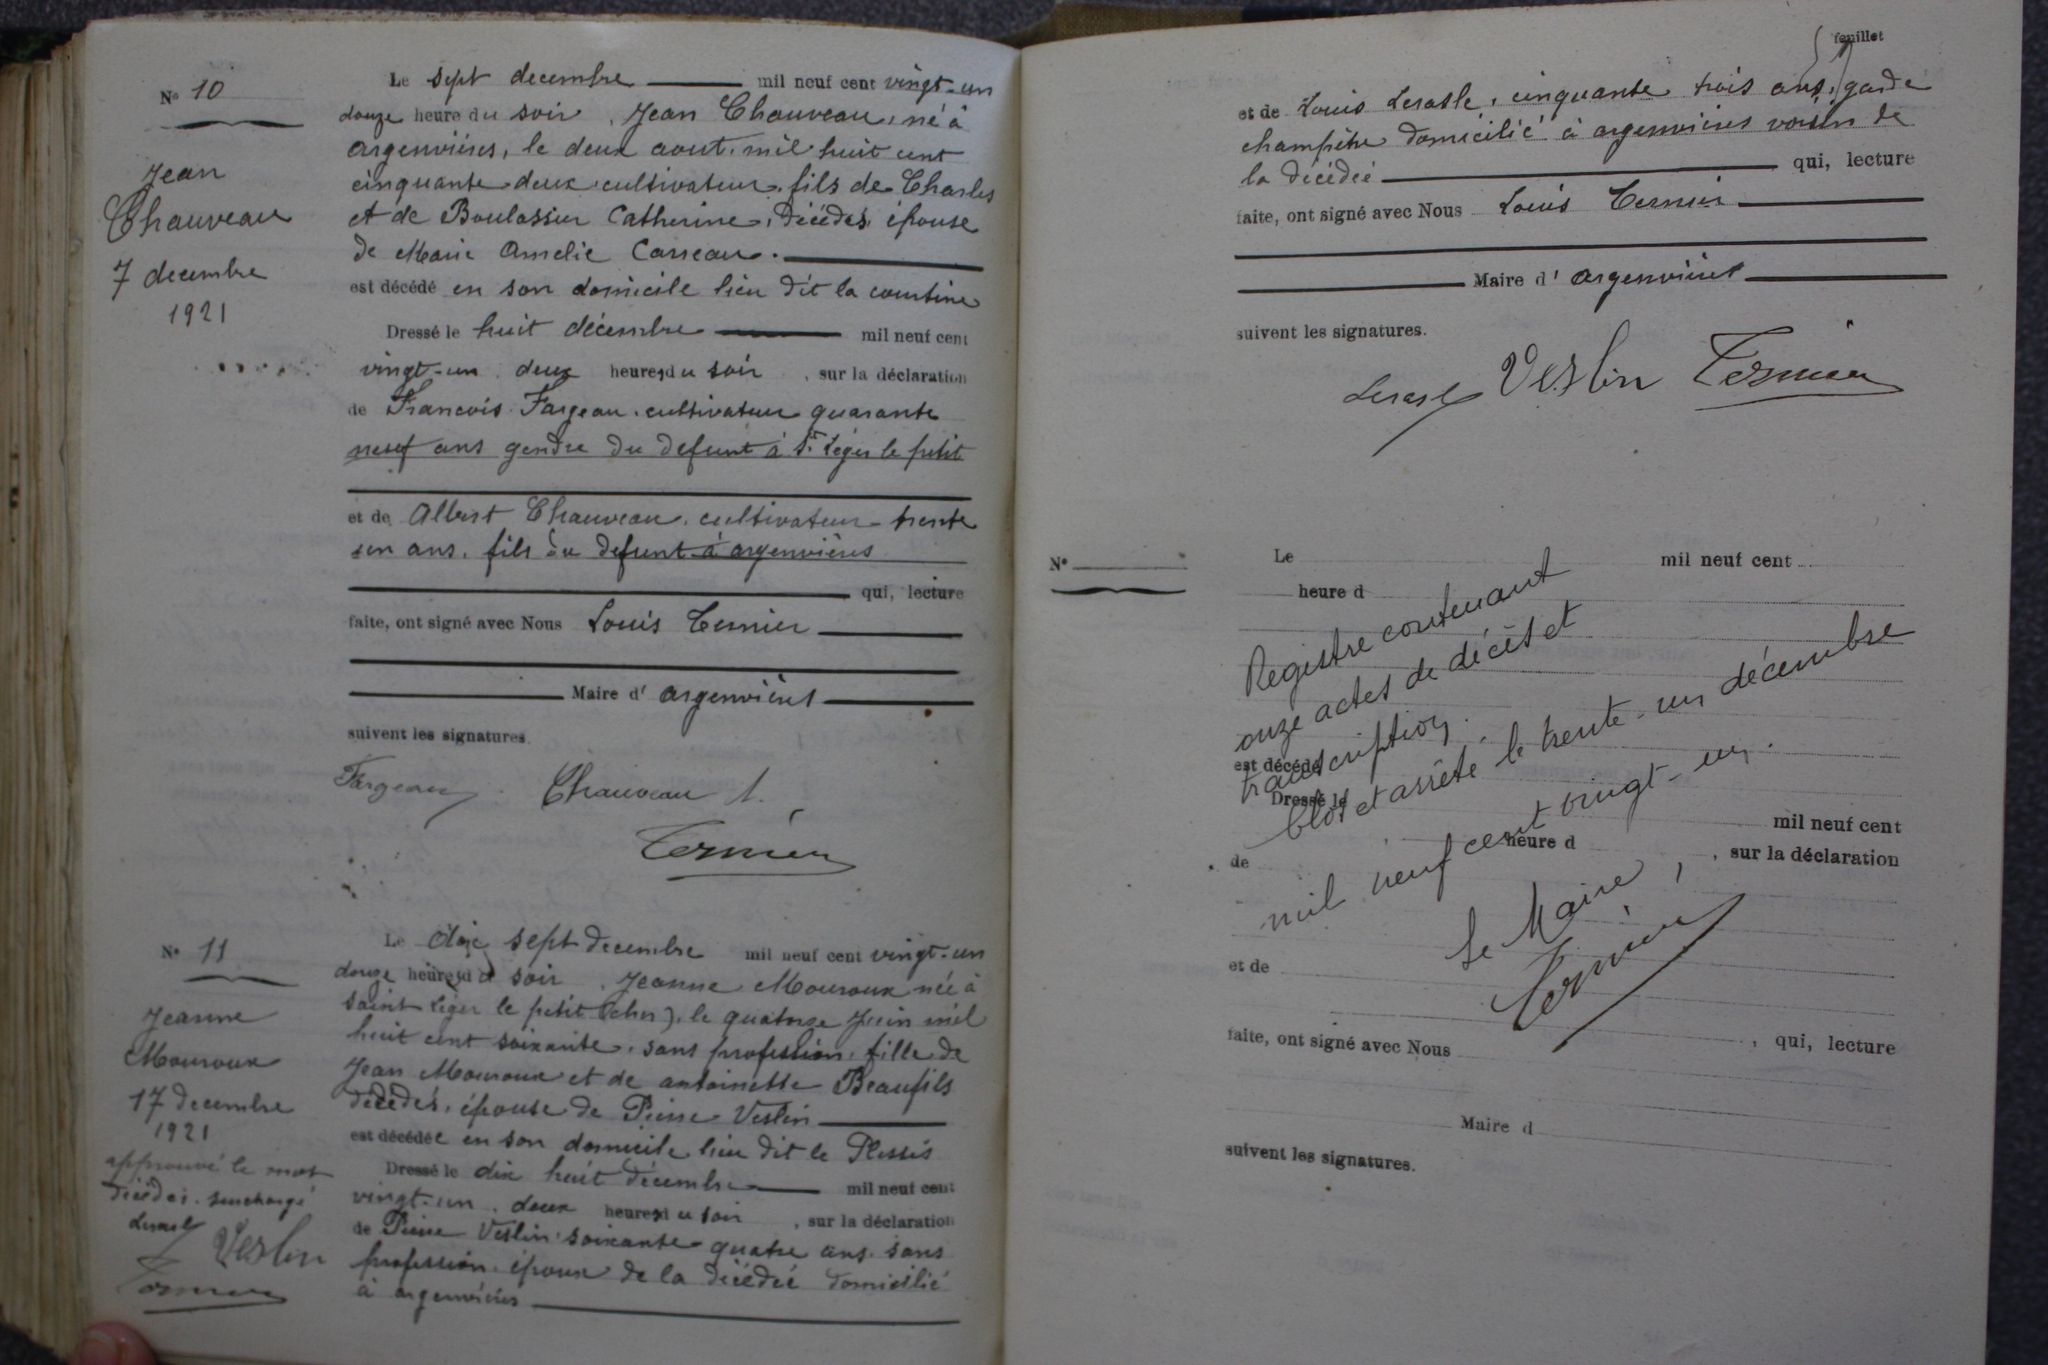 N° 10
Jean
Chauveau
7 decembre
1921
Le sept decembre mil neuf cent vingt-un
douze heure du soir, Jean Chauveau, né à
argenvières, le deux aout, mil huit cent
cinquante deux cultivateur, fils de Charles
et de Boulassier Catherine, décédés, épouse
de Marie Amelie Carreau.
est décédé en son domicile lieu dit la
Dressé le huit décembre mil neuf cent
vingt-un deux heures du soir, sur la déclaration
de Francois Fargeau, cultivateur quarante
neuf ans gendre du defunt à St Léger le petit
et de Albert Chauveau, cultivateur trente
un ans, fils du defunt à argenvières
qui, lecture
faite, ont signé avec Nous Louis Ternier
Maire d' argenvières
suivent les signatures.
Fargeau Chauveau A.
Ternier
N° 11
Jeanne
Mouroux
17 decembre
1921
approuvé le mot
décédés surchargé
Lerasle
Verlin
Ternier
Le dix sept decembre mil neuf cent vingt-un
douze heures du soir, Jeanne Mouroux née à
saint Léger le petit (cher), le quatorze Juin mil
huit cent soixante, sans profession, fille de
Jean Mouroux et de antoinette Beaufils
décédés, épouse de Pierre Verlin
est décédée en son domicile lieu dit le Plessis
Dressé le dix huit décembre mil neuf cent
vingt-un, deux heures du soir, sur la déclaration
de Pierre Verlin soixante-quatre ans, sans
profession, époux de la décédée domicilié
à argenvières
feuillet
et de Louis Lerasle, cinquante trois ans, garde
champêtre domicilié à argenvières voisin de
la décédée qui, lecture
faite, ont signé avec Nous Louis Ternier
Maire d' argenvières
suivent les signatures.
Lerasle Verlin Ternier
N°
Le mil neuf cent
heure d
Registre contenant
onze actes de décès et
transcription.
Clos et arrêté le trente-un décembre
mil neuf cent vingt-un.
Le Maire,
Ternier
est décédé
Dressé le mil neuf cent
heure d , sur la déclaration
de
et de
, qui, lecture
faite, ont signé avec Nous
Maire d
suivent les signatures.